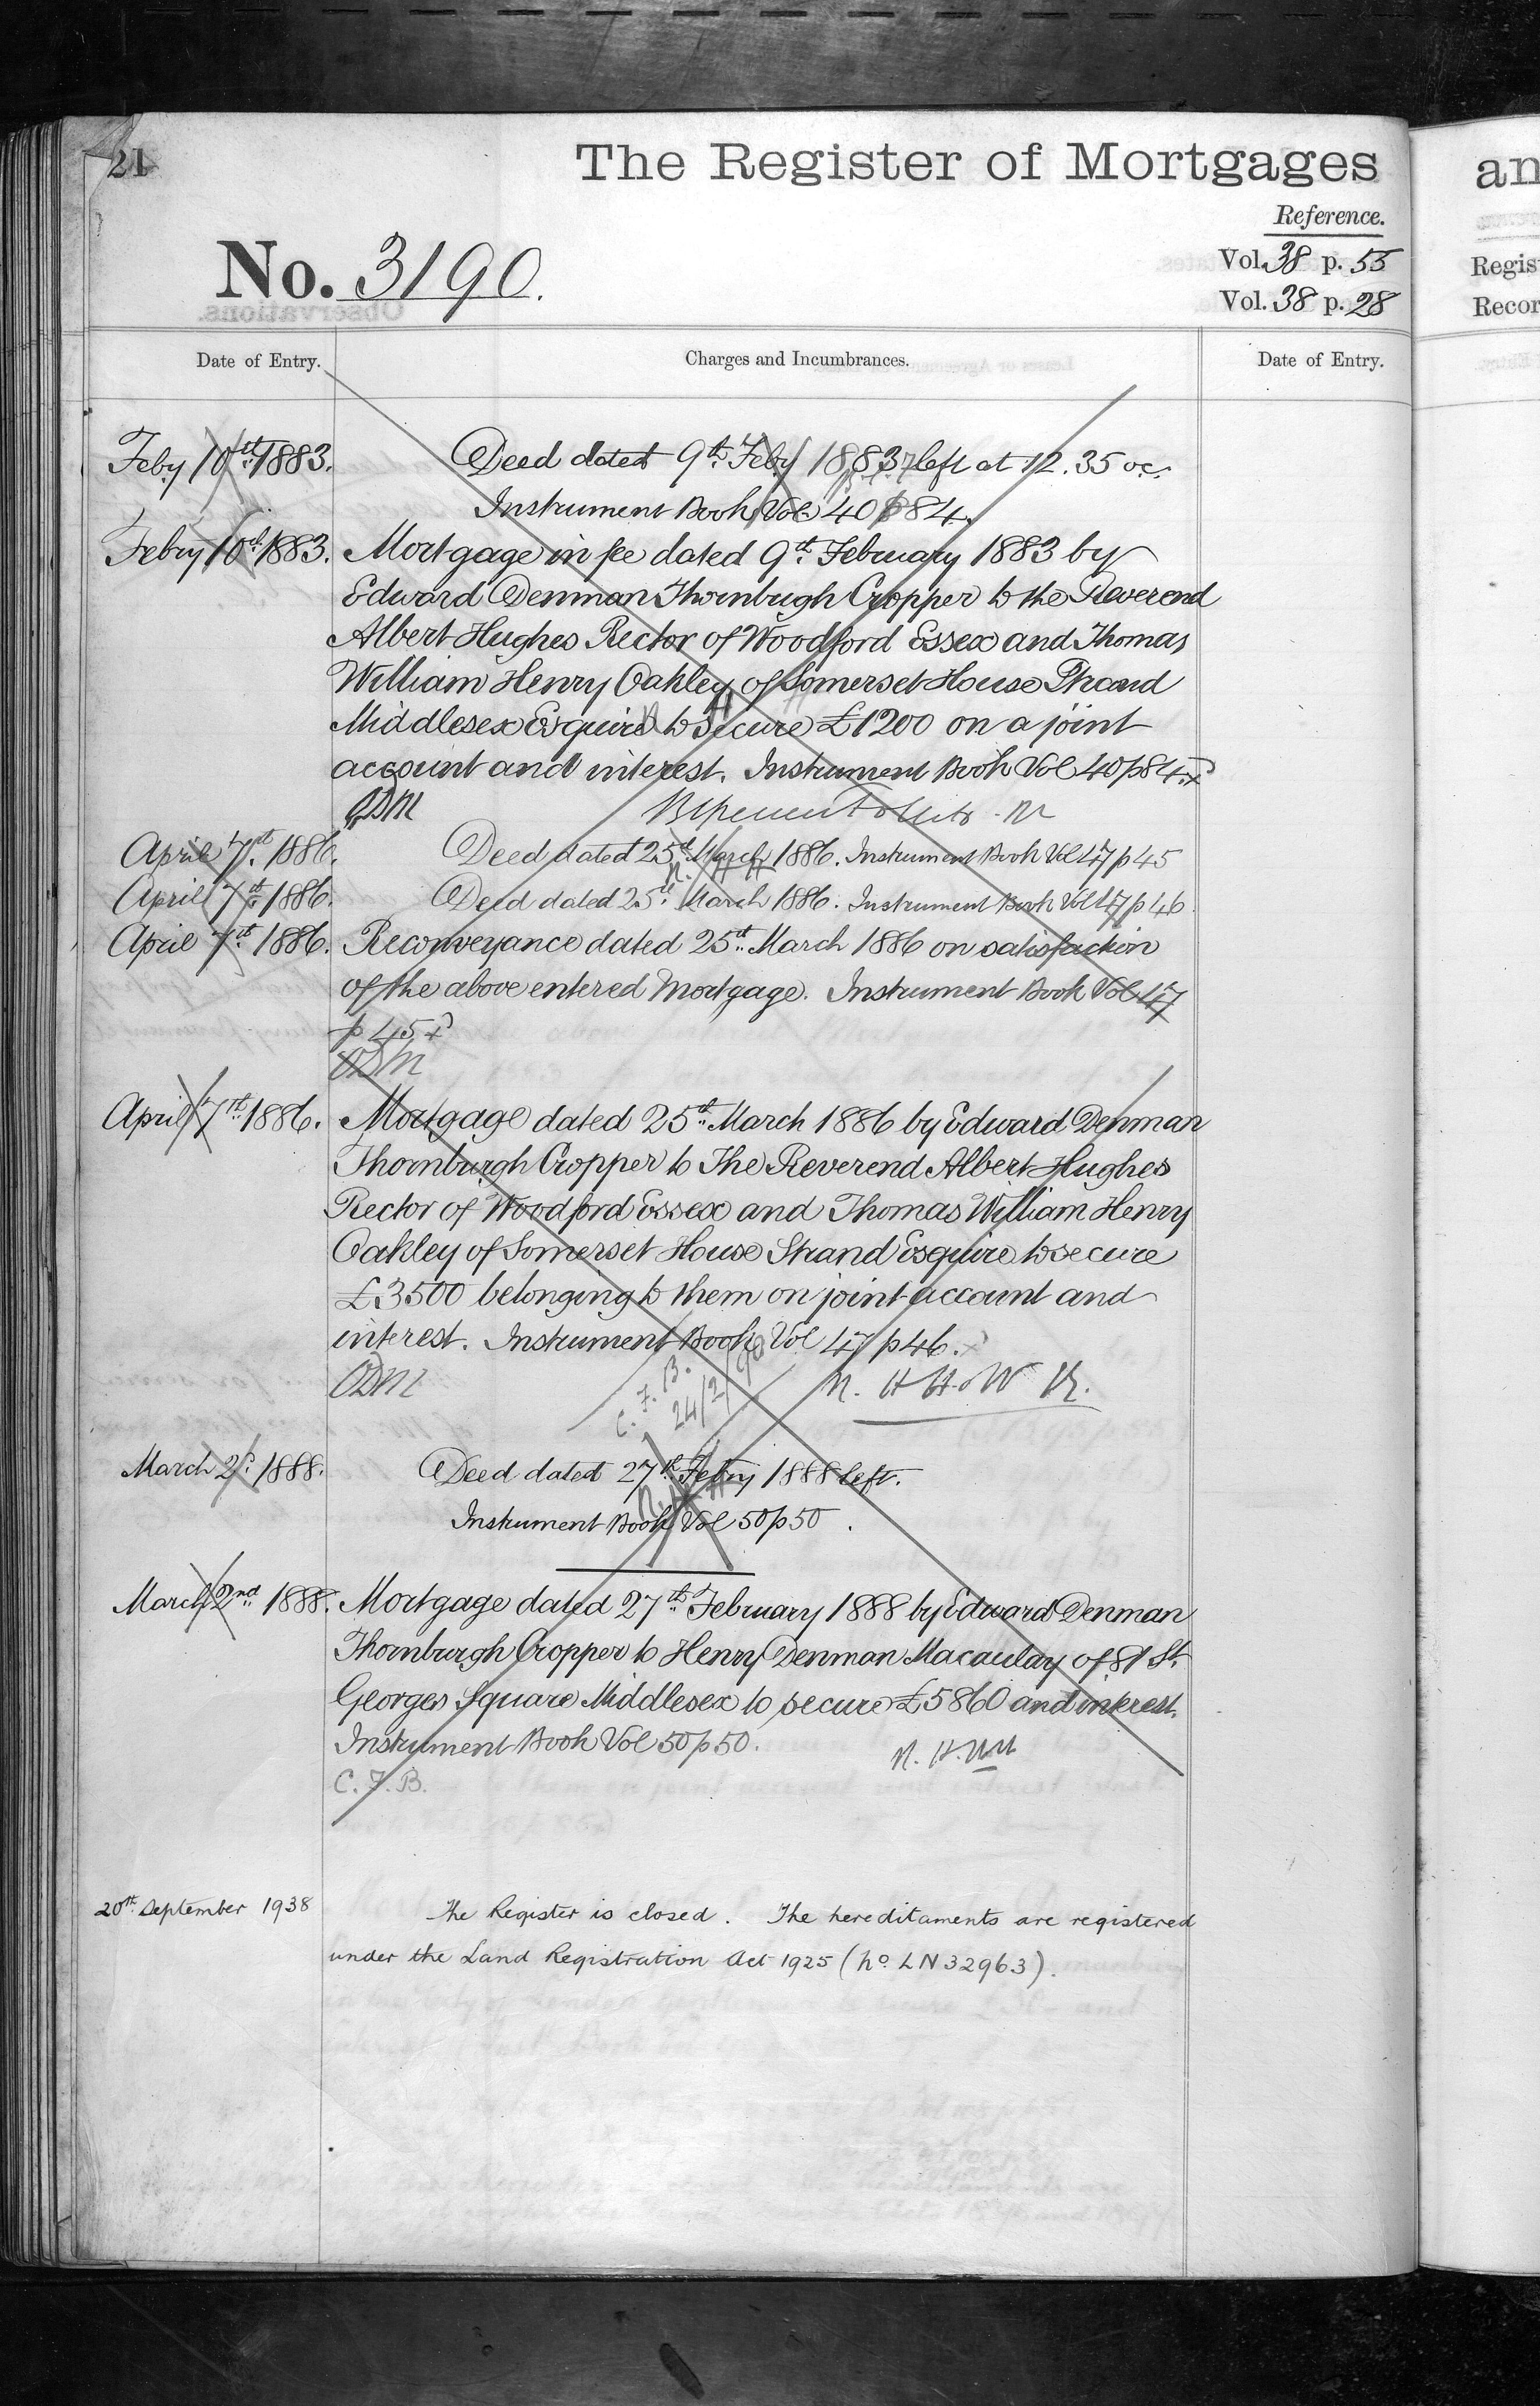 21
The Register of Mortgages
an
Reference.
No. 3190.
Vol. 38 p. 55
Regis
Vol. 38 p. 28
Recor
Date of Entry.
Charges and Incumbrances.
Date of Entry.
Feby 10th 1883.
Deed dated 9th Feby 1883 left at 12.35 oc.
Instrument Book Vol 40 p 84.
Febry 10th 1883.
Mortgage in fee dated 9th February 1883 by
Edward Denman Thornburgh Cropper to the Reverend
Albert Hughes Rector of Woodford Essex and Thomas
William Henry Oakley of Somerset House Strand
Middlesex Esquire to secure £1200 on a joint
account and interest. Instrument Book Vol 40 p 84.
April 7th 1886.
Deed dated 25th March 1886. Instrument Book Vol 47 p 45
April 7th 1886.
Deed dated 25th March 1886. Instrument Book Vol 47 p 46.
April 7th 1886.
Reconveyance dated 25th March 1886 on satisfaction
of the above entered Mortgage. Instrument Book Vol 47
p 45.
April 7th 1886.
Mortgage dated 25th March 1886 by Edward Denman
Thornburgh Cropper to The Reverend Albert Hughes
Rector of Woodford Essex and Thomas William Henry
Oakley of Somerset House Strand Esquire to secure
£3500 belonging to them on joint account and
interest. Instrument Book Vol 47 p 46.
C. F. B.
24/2/90
March 2d. 1888.
Deed dated 27th Febry 1888 left.
Instrument Book Vol 50 p 50.
March 2nd 1888.
Mortgage dated 27th February 1888 by Edward Denman
Thornburgh Cropper to Henry Denman Macaulay of 81 St.
Georges Square Middlesex to secure £5860 and interest.
Instrument Book Vol 50 p 50.
C. F. B.
20th September 1938
The Register is closed. The hereditaments are registered
under the Land Registration Act 1925 (No LN 32963).